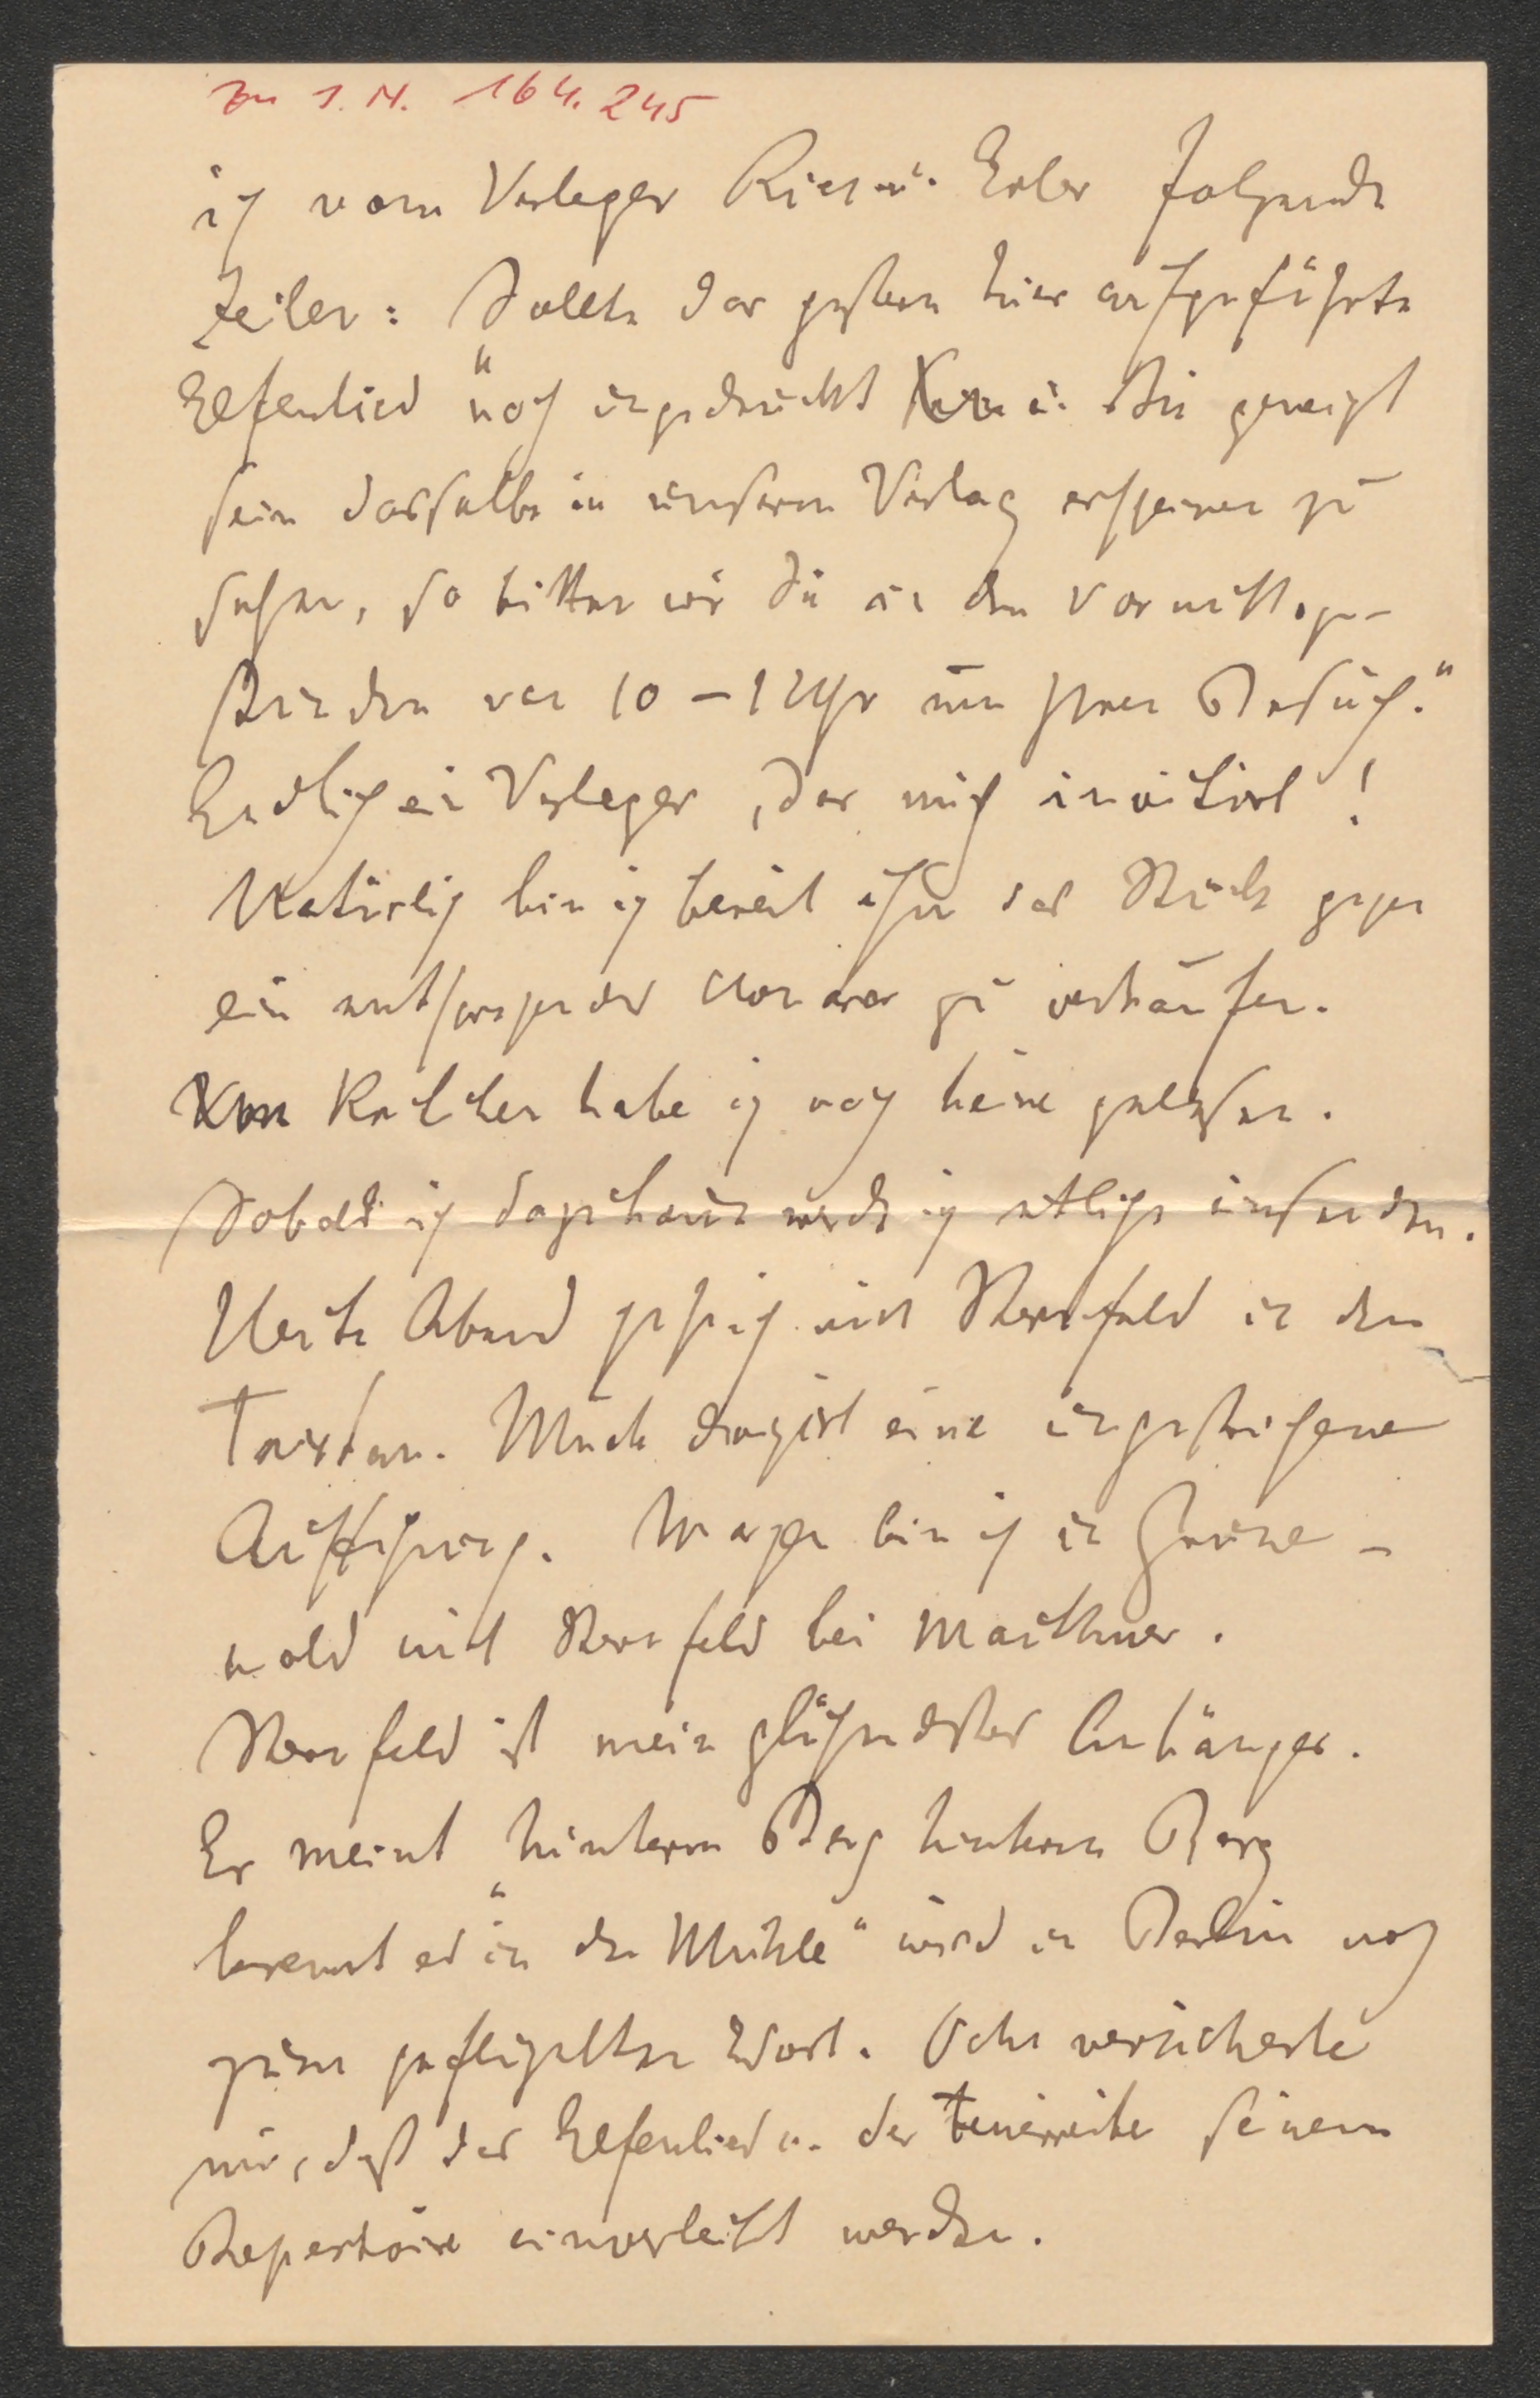 zu I.N. 164.245
ich vom Verleger Ries u. Erler folgende
Zeilen: Sollte das gestern hier aufgeführte
Elfenlied "noch ungedruckt u. Sie geneigt
sein dasselbe in unserem Verlag erscheinen zu
sehen, so bitten wir Sie in den Vormittags-
stunden von 10 – 1 Uhr um Ihren Besuch."
Endlich ein Verleger, der mich invitirt!
Natürlich bin ich bereit ihm das Stück gegen
ein entsprechendes Honorar zu verkaufen.
Von Kritiken habe ich noch keine gelesen.
Sobald ich dazukomme werde ich etliche einsenden.
Heute Abend gehe ich mit Sternfeld in den
Tristan. Muck dirigirt eine ungestrichene
Aufführung. Morgen bin ich in Grune-
wald mit Sternfeld bei Mauthner.
Sternfeld ist mein glühendster Anhänger.
Er meint "hinterm Berg hinterm Berg
brennt es in der Mühle" wird in Berlin noch
zum geflügelten Wort. Ochs versicherte
mir, daß das Elfenlied u. der Feuerreiter seinem
Repertoire einverleibt werden.